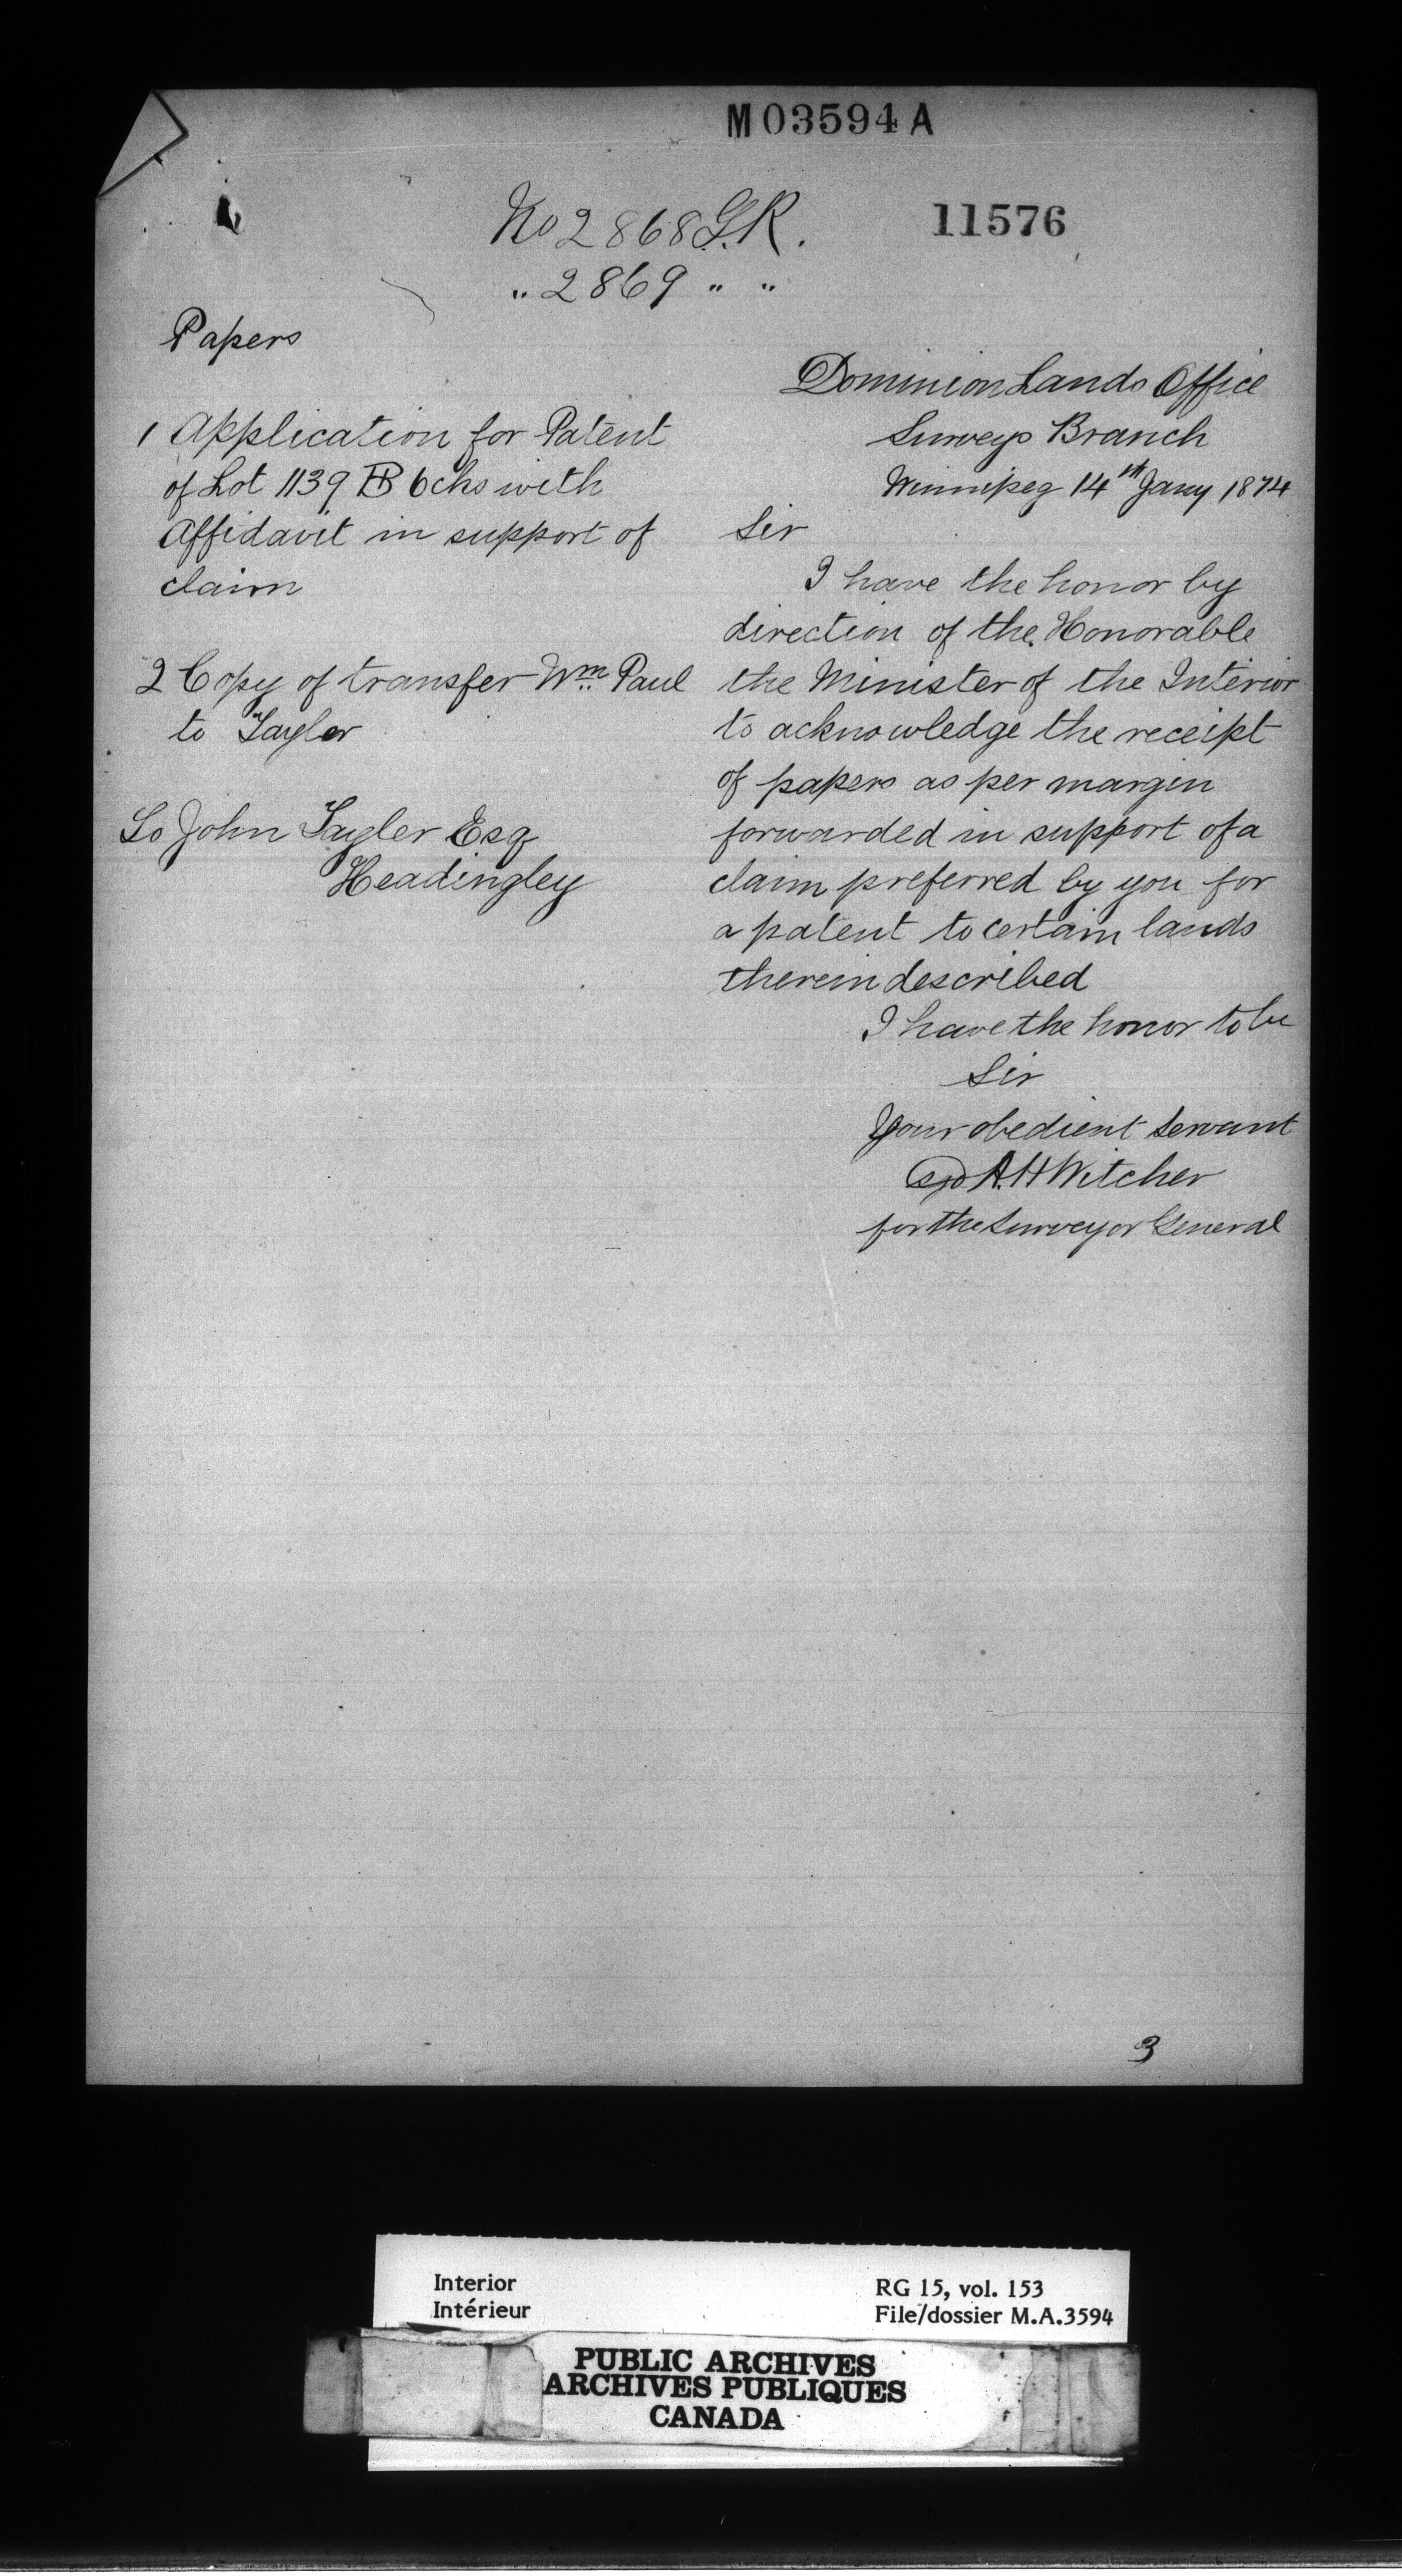 M 03594 A
11576
No 2868 G.R.
" 2869 " "
Papers
1 Application for Patent
of Lot 1139 HB 6chs with
Affidavit in support of
claim
2 Copy of transfer Wm Paul
to Tayler
To John Tayler Esq
Headingley
Dominion Lands Office
Surveys Branch
Winnipeg 14th Jany 1874
Sir
I have the honor by
direction of the Honorable
the Minister of the Interior
to acknowledge the receipt
of papers as per margin
forwarded in support of a
claim preferred by you for
a patent to certain lands
therein described
I have the honor to be
Sir
Your obedient servant
sgd A.H Witcher
for the Surveyor General
3
Interior
Intérieur
RG 15, vol. 153
File/dossier M.A.3594
PUBLIC ARCHIVES
ARCHIVES PUBLIQUES
CANADA